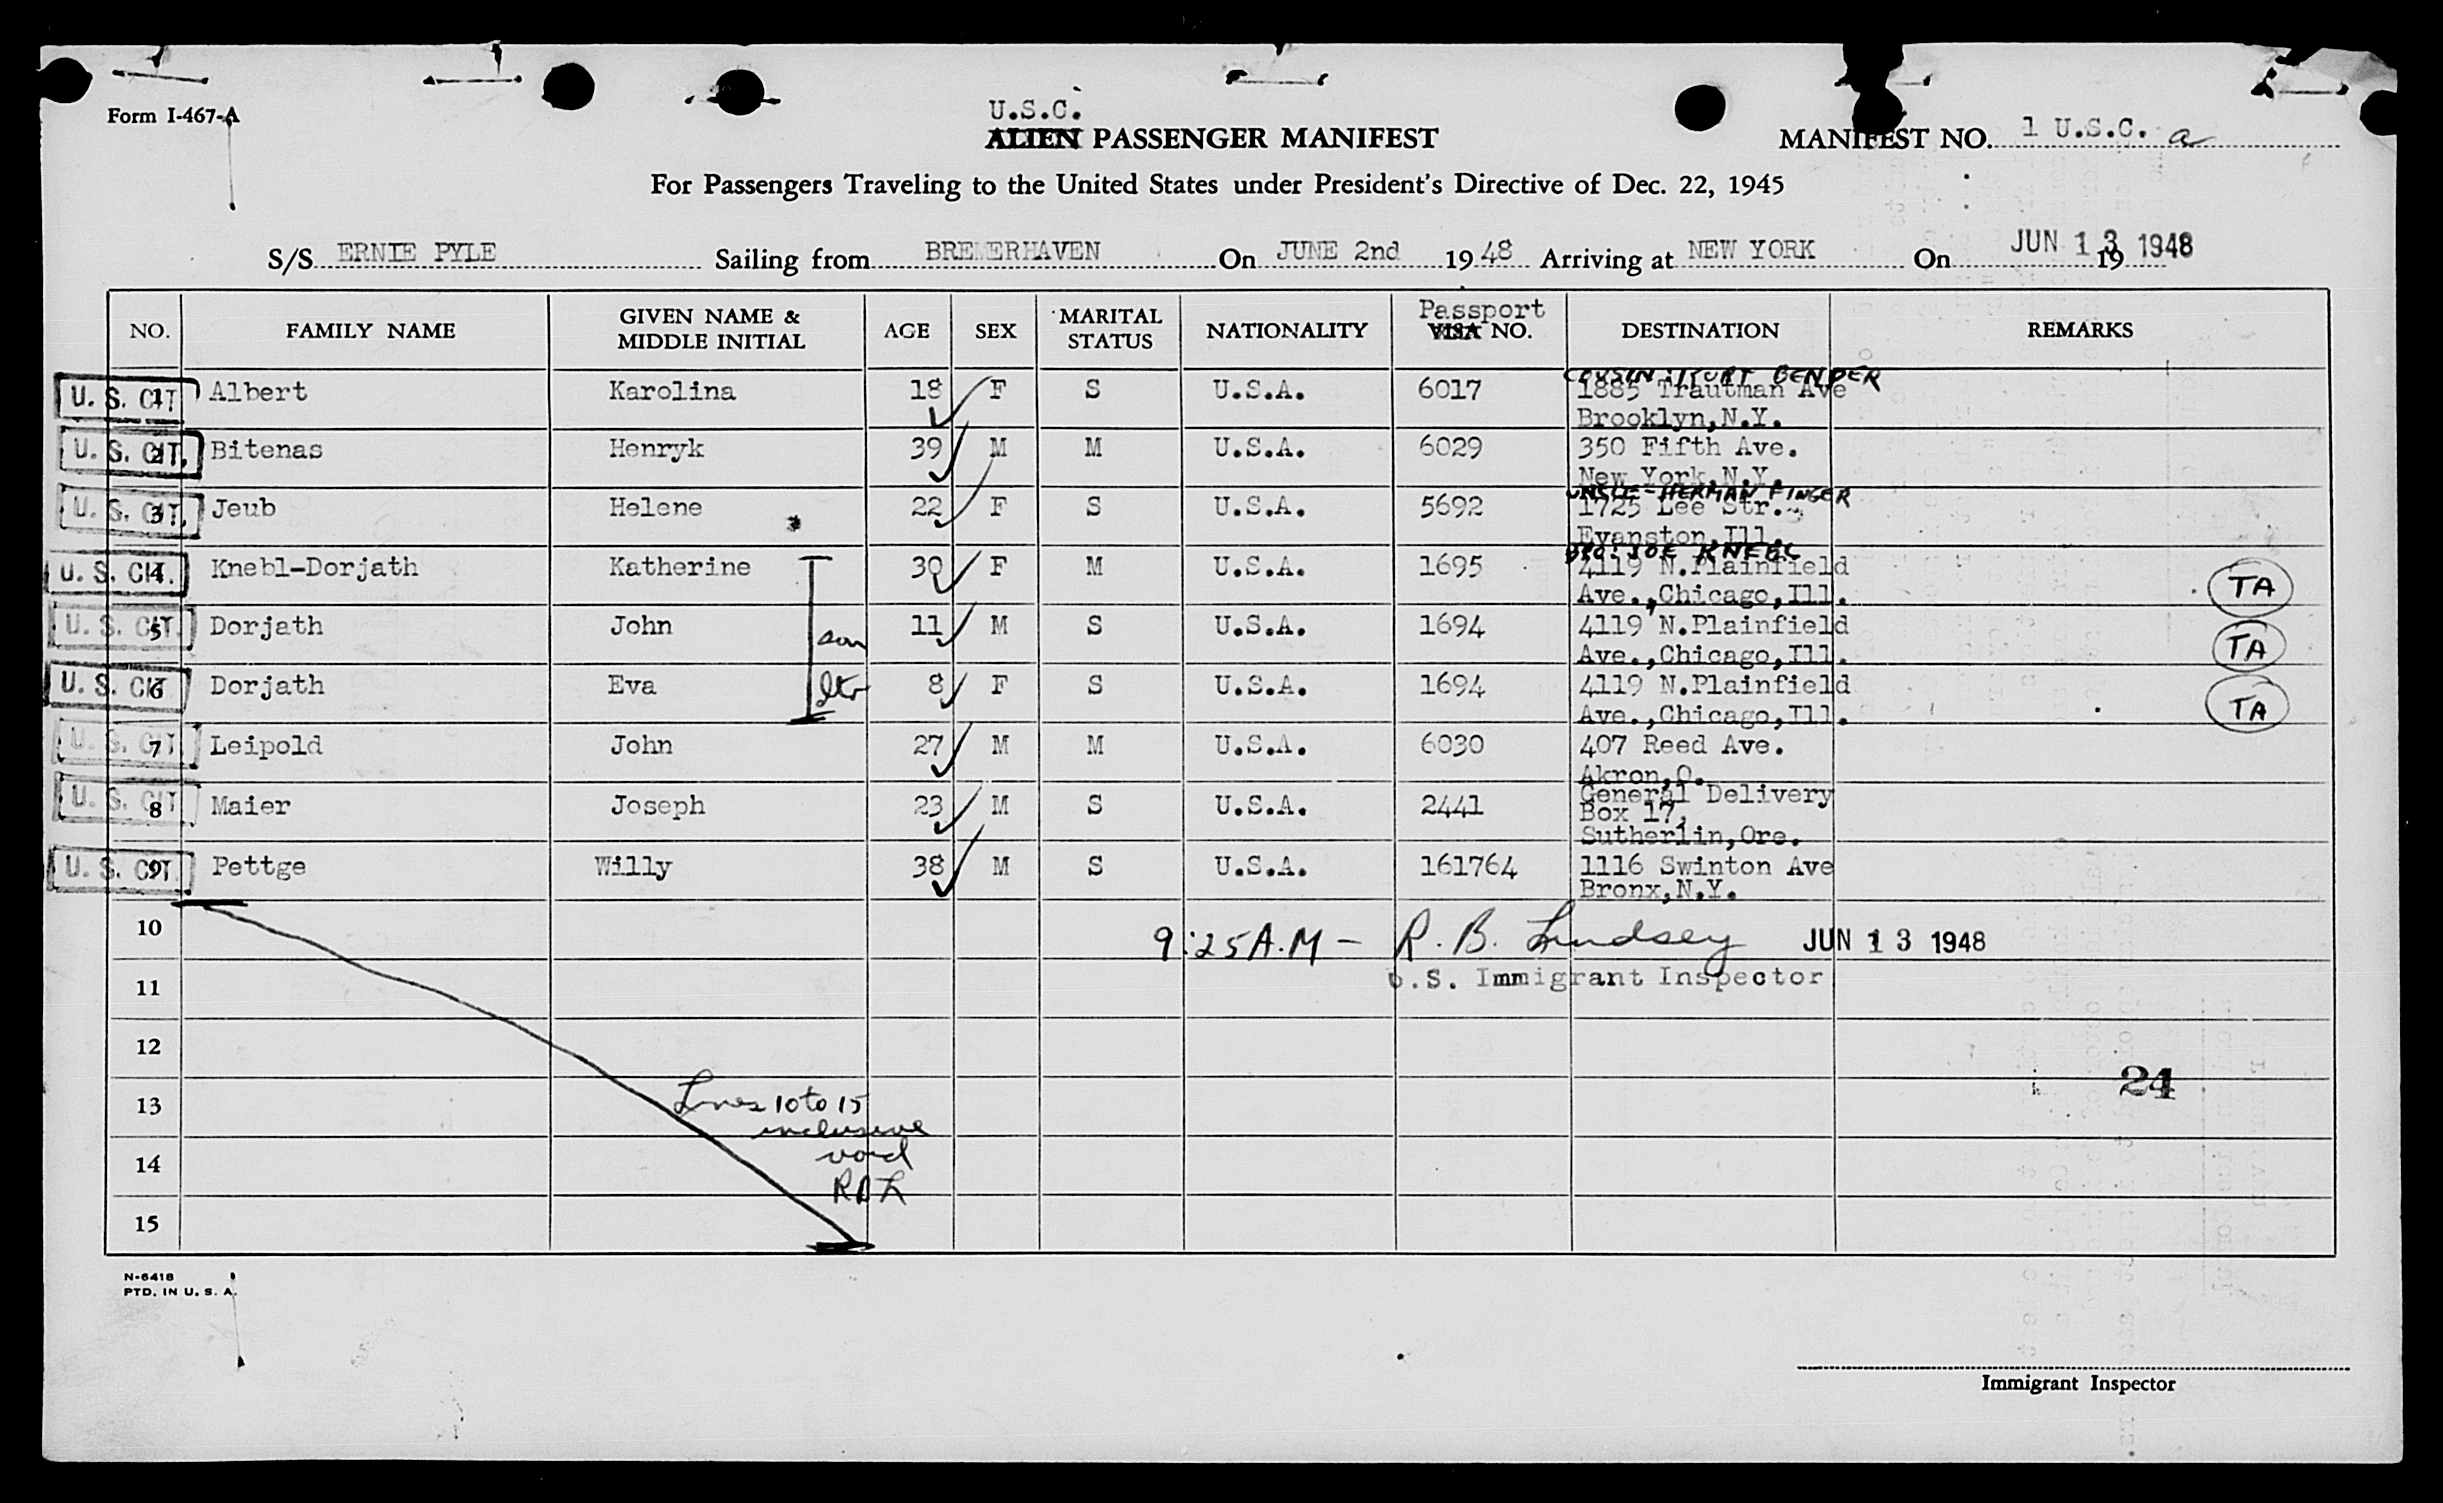 Form I-467-A
U.S.C.
ALIEN PASSENGER MANIFEST
MANIFEST NO. 1 U.S.C. a
For Passengers Traveling to the United States under President's Directive of Dec. 22, 1945
S/S ERNIE PYLE Sailing from BREMERHAVEN On JUNE 2nd 1948 Arriving at NEW YORK On JUN 13 1948 19
NO. FAMILY NAME GIVEN NAME & MIDDLE INITIAL AGE SEX MARITAL STATUS NATIONALITY Passport VISA NO. DESTINATION REMARKS
COUSIN: KURT BENDER
U. S. CIT. 1 Albert Karolina 18 F S U.S.A. 6017 1885 Trautman Ave
Brooklyn,N.Y.
U. S. CIT. 2 Bitenas Henryk 39 M M U.S.A. 6029 350 Fifth Ave.
New York,N.Y.
UNCLE-HERMAN FINGER
U. S. CIT. 3 Jeub Helene 22 F S U.S.A. 5692 1725 Lee Str.
Evanston,Ill.
BRO: JOE KNEBL
U. S. CIT. 4 Knebl-Dorjath Katherine 30 F M U.S.A. 1695 4119 N.Plainfield TA
Ave.,Chicago,Ill.
U. S. CIT. 5 Dorjath John son 11 M S U.S.A. 1694 4119 N.Plainfield TA
Ave.,Chicago,Ill.
U. S. CIT. 6 Dorjath Eva dtr 8 F S U.S.A. 1694 4119 N.Plainfield TA
Ave.,Chicago,Ill.
U. S. CIT. 7 Leipold John 27 M M U.S.A. 6030 407 Reed Ave.
Akron,O.
U. S. CIT. 8 Maier Joseph 23 M S U.S.A. 2441 General Delivery
Box 17,
Sutherlin,Ore.
U. S. CIT. 9 Pettge Willy 38 M S U.S.A. 161764 1116 Swinton Ave
Bronx,N.Y.
10 9:25 A.M - R. B. Lindsey JUN 13 1948
11 U.S. Immigrant Inspector
12
24
13 Lines 10 to 15
inclusive
14 void
RBL
15
N-6418
PTD. IN U. S. A.
Immigrant Inspector